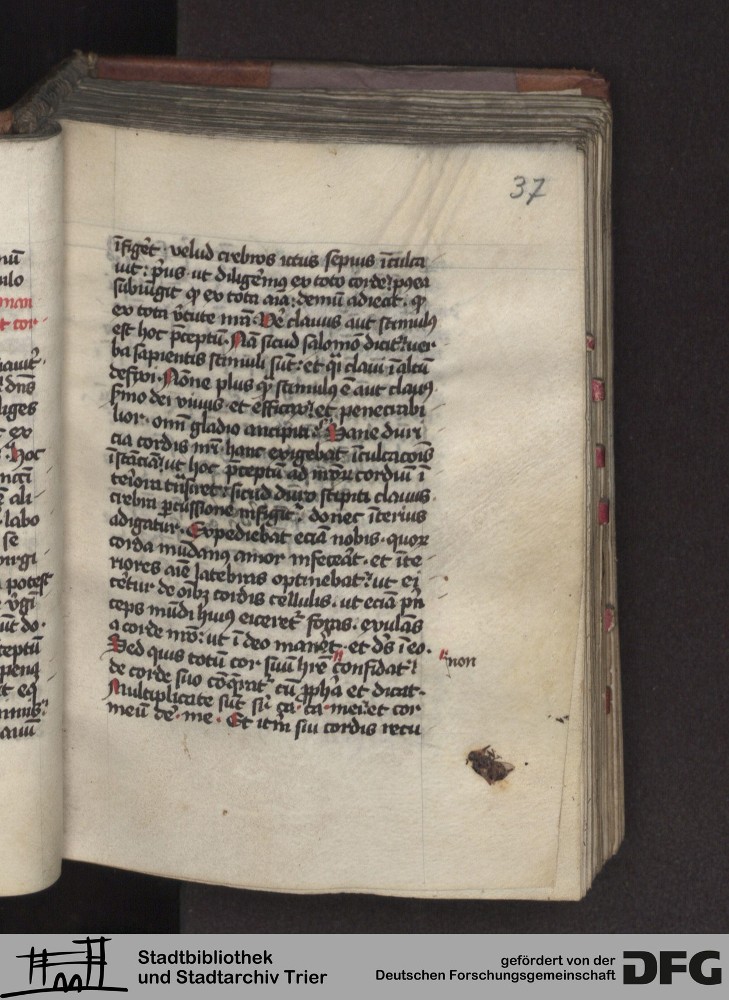 37
īfigēt · velud crebros ictus sepius ītulca
uit : p̄us · ut diligēmꝰ ex toto corde : poea
subiūgit ꝙ ex tota aīa : demū adiecit · ꝙ
ex tota v̄tute mr̄a · Ve clauus aut stimulꝰ
est hoc p̄ceptū · Nā sicud salomō dicit : ver
ba sapientis stimuli sūt : et qͥ claui ī altū
defixi · Nōne plus ꝙ stimulꝰ ē aut clauꝰ
sm̄o dei viuus · et efficax : et penetrabi
lior · om̄i gladio ancipiti · Sane duri
cia cordis nr̄i · hanc exigebat ītulcacōis
īstācīā : ut hoc p̄ceptū ad nr̄oꝝ cordiū ī
teriora tn̄siret : sicud duro stipiti clauus ·
crebra ꝑcussione īnfigit͛ : donec īterius
adigatur · Expediebat eciā nobis · quoꝝ
corda mūdanꝰ amor infecerat · et īte
riores aīe latebras optinebat : ut ei
cētur de oībꝫ cordis cellulis · ut eciā pn̄
ceps mūdi huiꝰ eiceret͛ foras · exulās
a corde nr̄o : ut ī deo manēt · et dꝰs ī eo ·
Sed quis totū cor suū hr̄e confidat
non
de corde suo cōq̄rat͛ cū ꝓpha et dicat ·
Multiplicate sūt sr̄ ca · ca · mei · et cor
meū de · me · Et itm̄ sui cordis recu
Stadtbibliothek
und Stadtarchiv Trier
gefördert von der
Deutschen Forschungsgemeinschaft
DFG